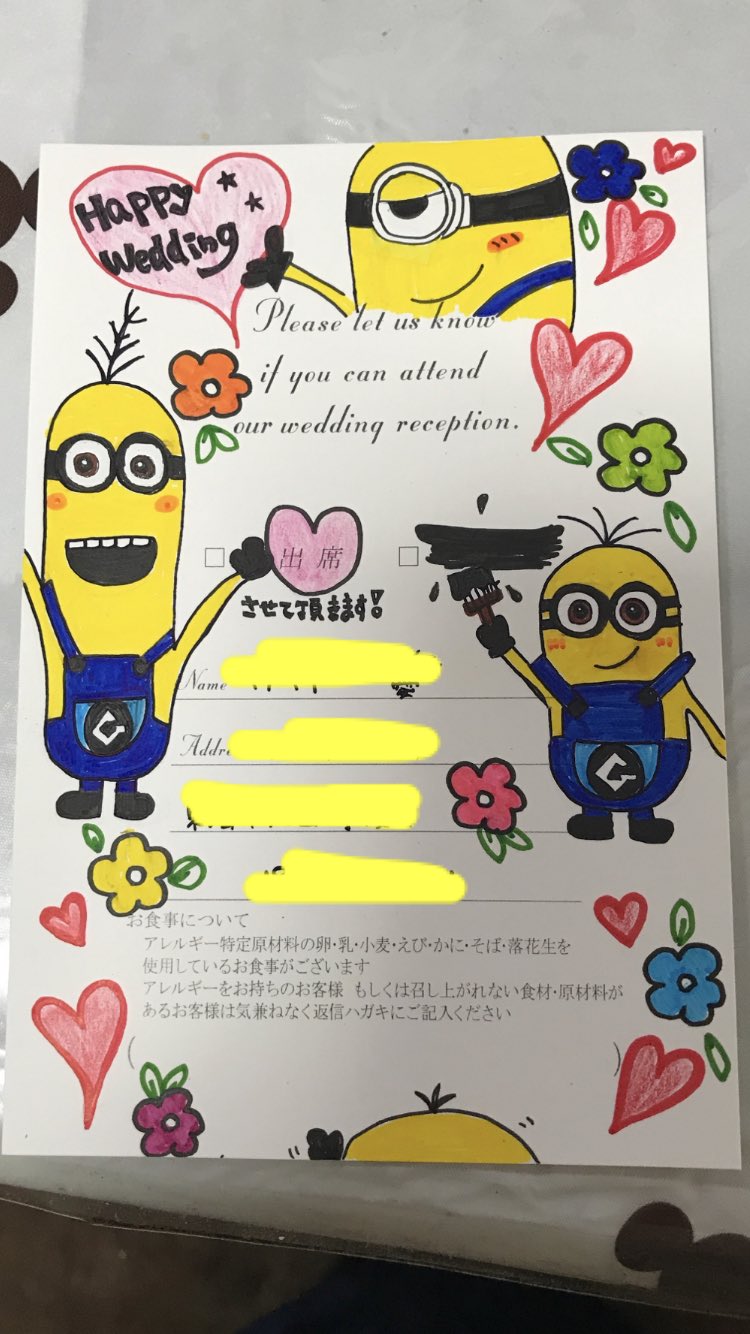 Happy
Wedding
Please let us know
if you can attend
our wedding reception.
出席
させて頂きます!
Name
お食事について
アレルギー特定原材料の卵・乳・小麦・えび・かに・そば・落花生を
使用しているお食事がございます
アレルギーをお持ちのお客様 もしくは召し上がれない食材・原材料が
あるお客様は気兼ねなく返信ハガキにご記入ください
( )